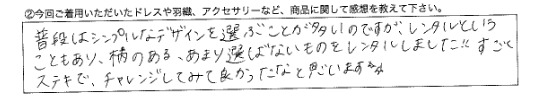 ②今回ご着用いただいたドレスや羽織、アクセサリーなど、商品に関して感想を教えて下さい。
普段はシンプルなデザインを選ぶことが多いのですが、レンタルという
こともあり、柄のある、あまり選ばないものをレンタルしました!! すごく
ステキで、チャレンジしてみて良かったなと思います